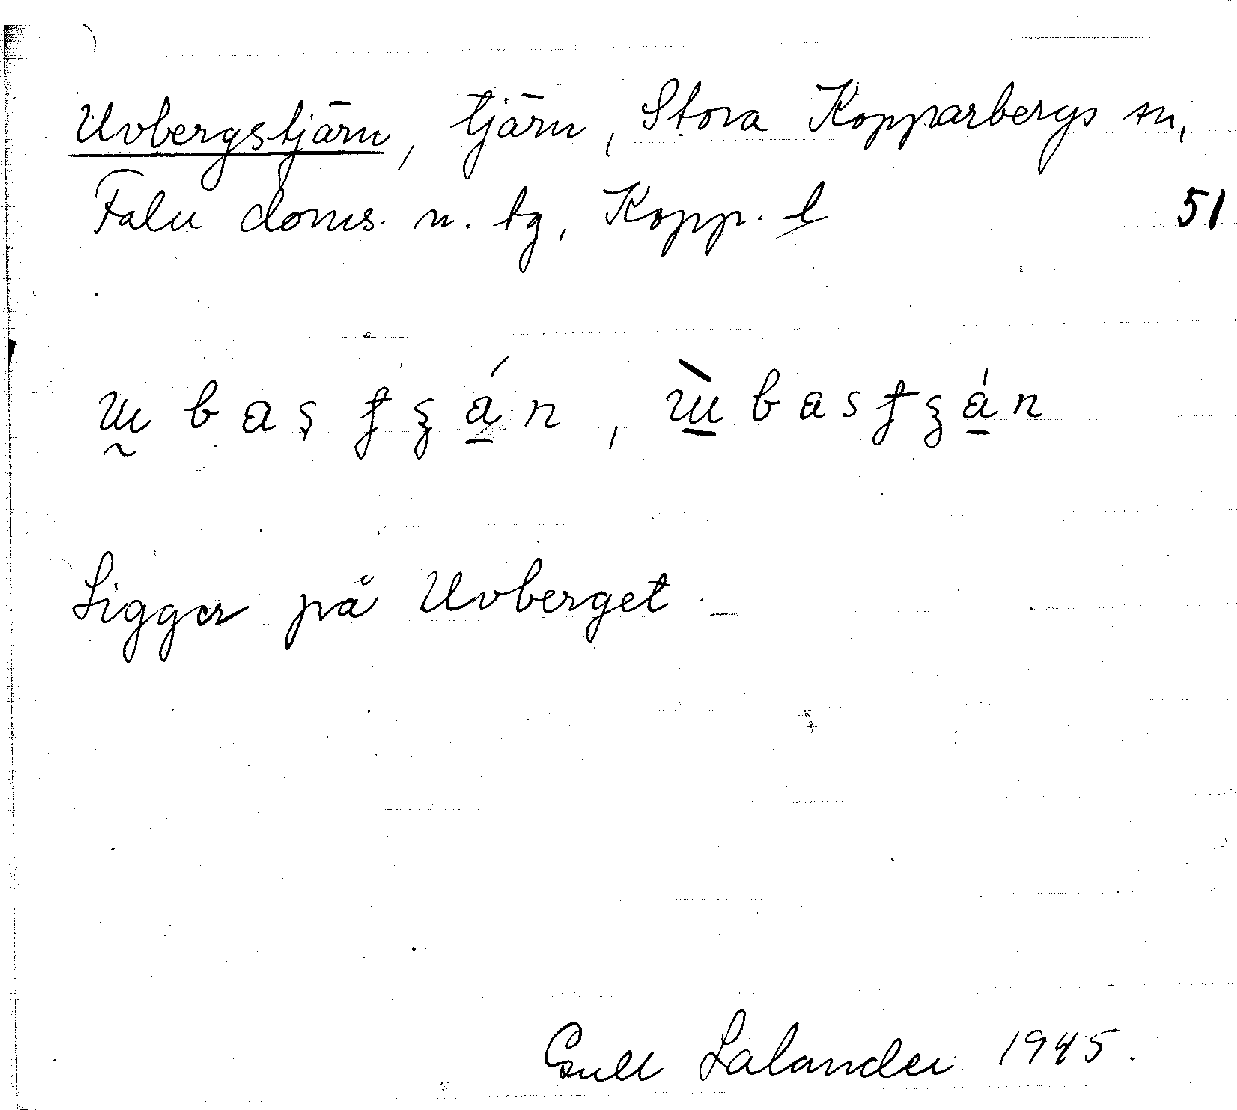 Uvbergstjärn, tjärn, Stora Kopparbergs sn,
Falu doms. n. tg, Kopp. l
51
Ligger på Uvberget.
Gull Lalander 1945.